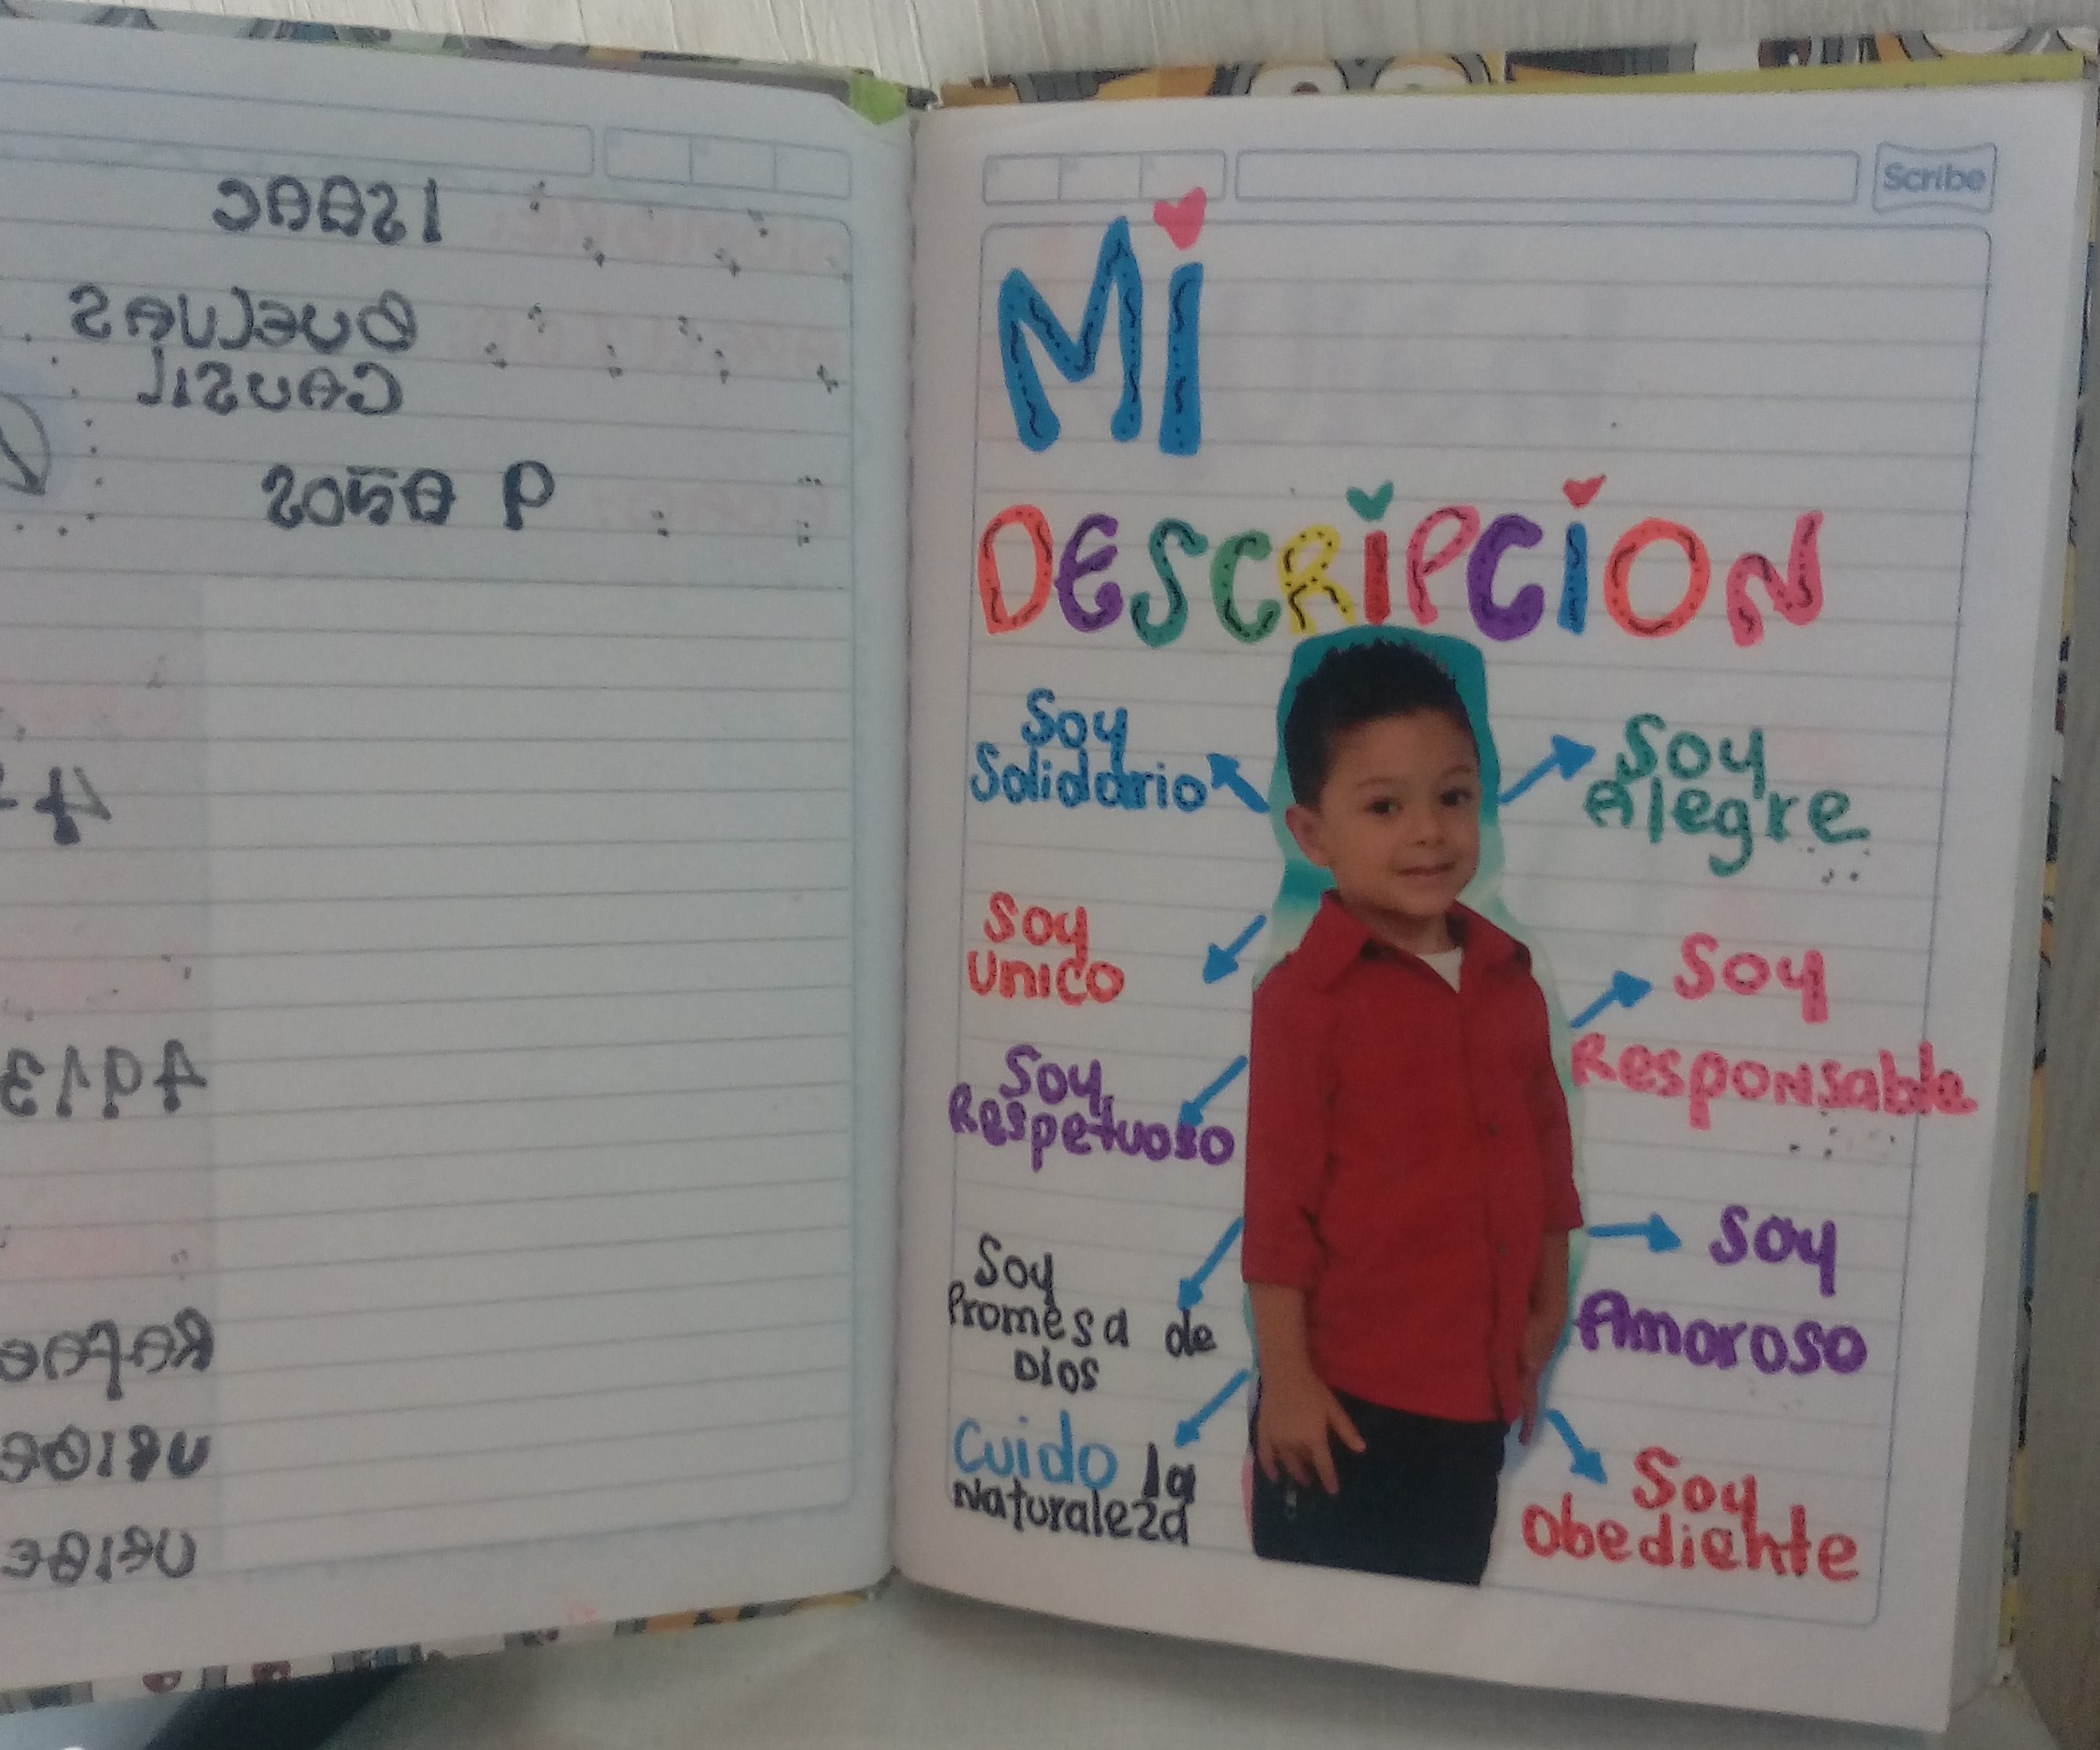 ISAAC
CAUSIL
9 AÑOS
Scribe
Mi
DESCRiPCiON
Soy
Solidario
Soy
Alegre
Soy
Unico
Soy
Responsable
Soy
Respetuoso
Soy
Amoroso
Soy
Promesa de
Dios
Cuido la
Naturaleza
Soy
Obediente